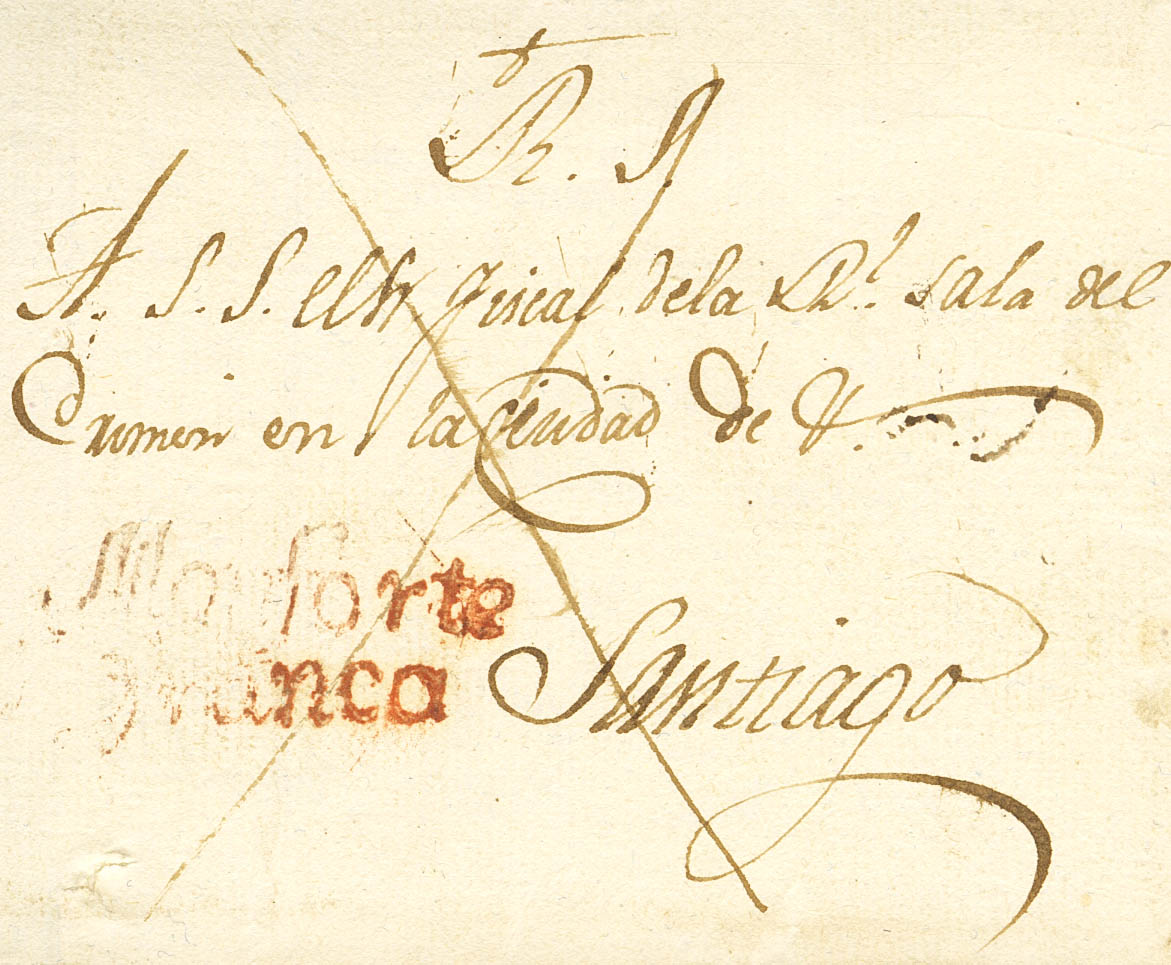 R. S.
A. S. S. el Sr Fiscal dela Rl. sala del
Crimen en la Ciudad de
Monforte
Franca
Santiago